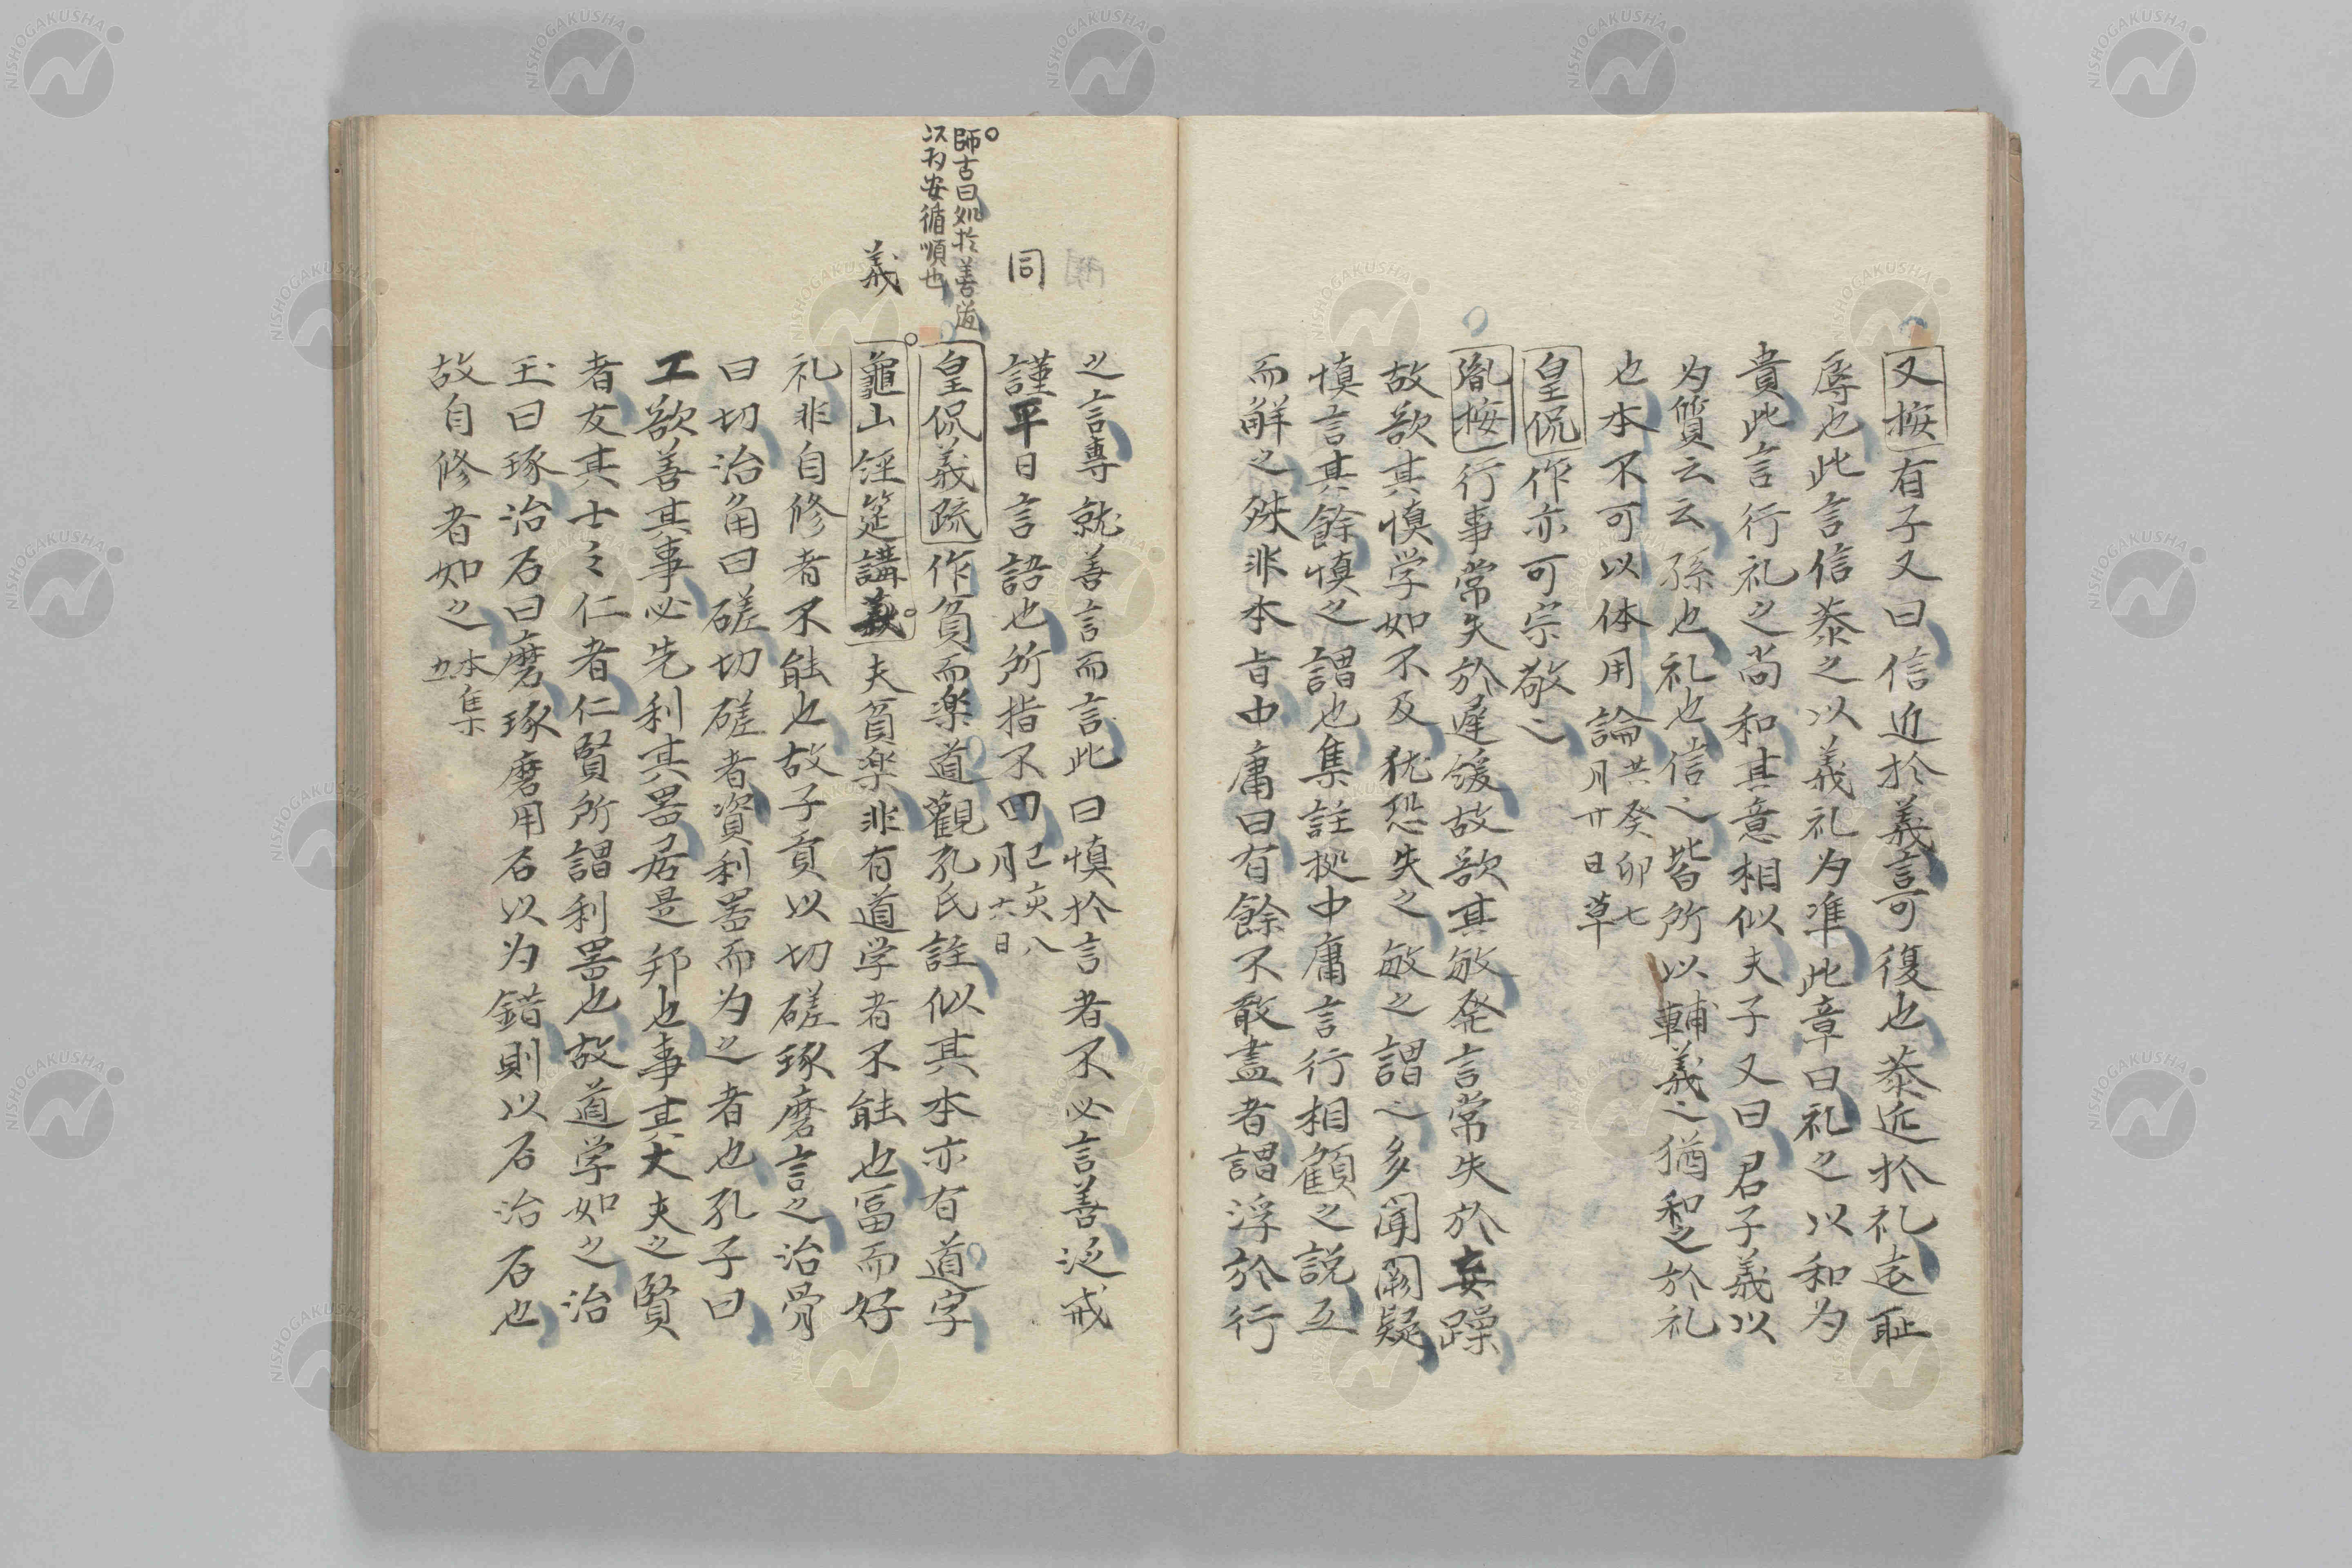 又按有子又曰信近於義言可復也恭近於礼遠耻
辱也此言信恭之以義礼为準此章曰礼之以和为
貴此言行礼之尚和其意相似夫子又曰君子義以
为質云云孫也礼也信之皆所以輔義之猶和之於礼
也本不可以体用論 共癸卯七
月廿日草
皇侃作亦可宗敬之
胤按行事常失於遅緩故欲其敏発言常失於妄躁
故欲其慎学如不及犹恐失之敏之謂之多聞闕疑
慎言其餘慎之謂也集註拠中庸言行相顧之説互
而解之殊非本旨中庸曰有餘不敢盡者謂浮於行
之言專就善言而言此曰慎於言者不必言善泛戒
同
謹平日言語也所指不四 己亥八
月六日
師古曰処於善道
以为安循順也
皇侃義疏作貧而楽道觀孔氏註似其本亦有道字
義
龜山経筵講義夫貧楽非有道学者不能也冨而好
礼非自修者不能也故子貢以切磋琢磨言之治骨
曰切治角曰磋切磋者資利噐而为之者也孔子曰
工欲善其事必先利其噐居是邦也事其大夫之賢
者友其士之仁者仁賢所謂利噐也故道学如之治
玉曰琢治石曰磨琢磨用石以为錯則以石治石也
故自修者如之 本集
五
NISHOGAKUSHA